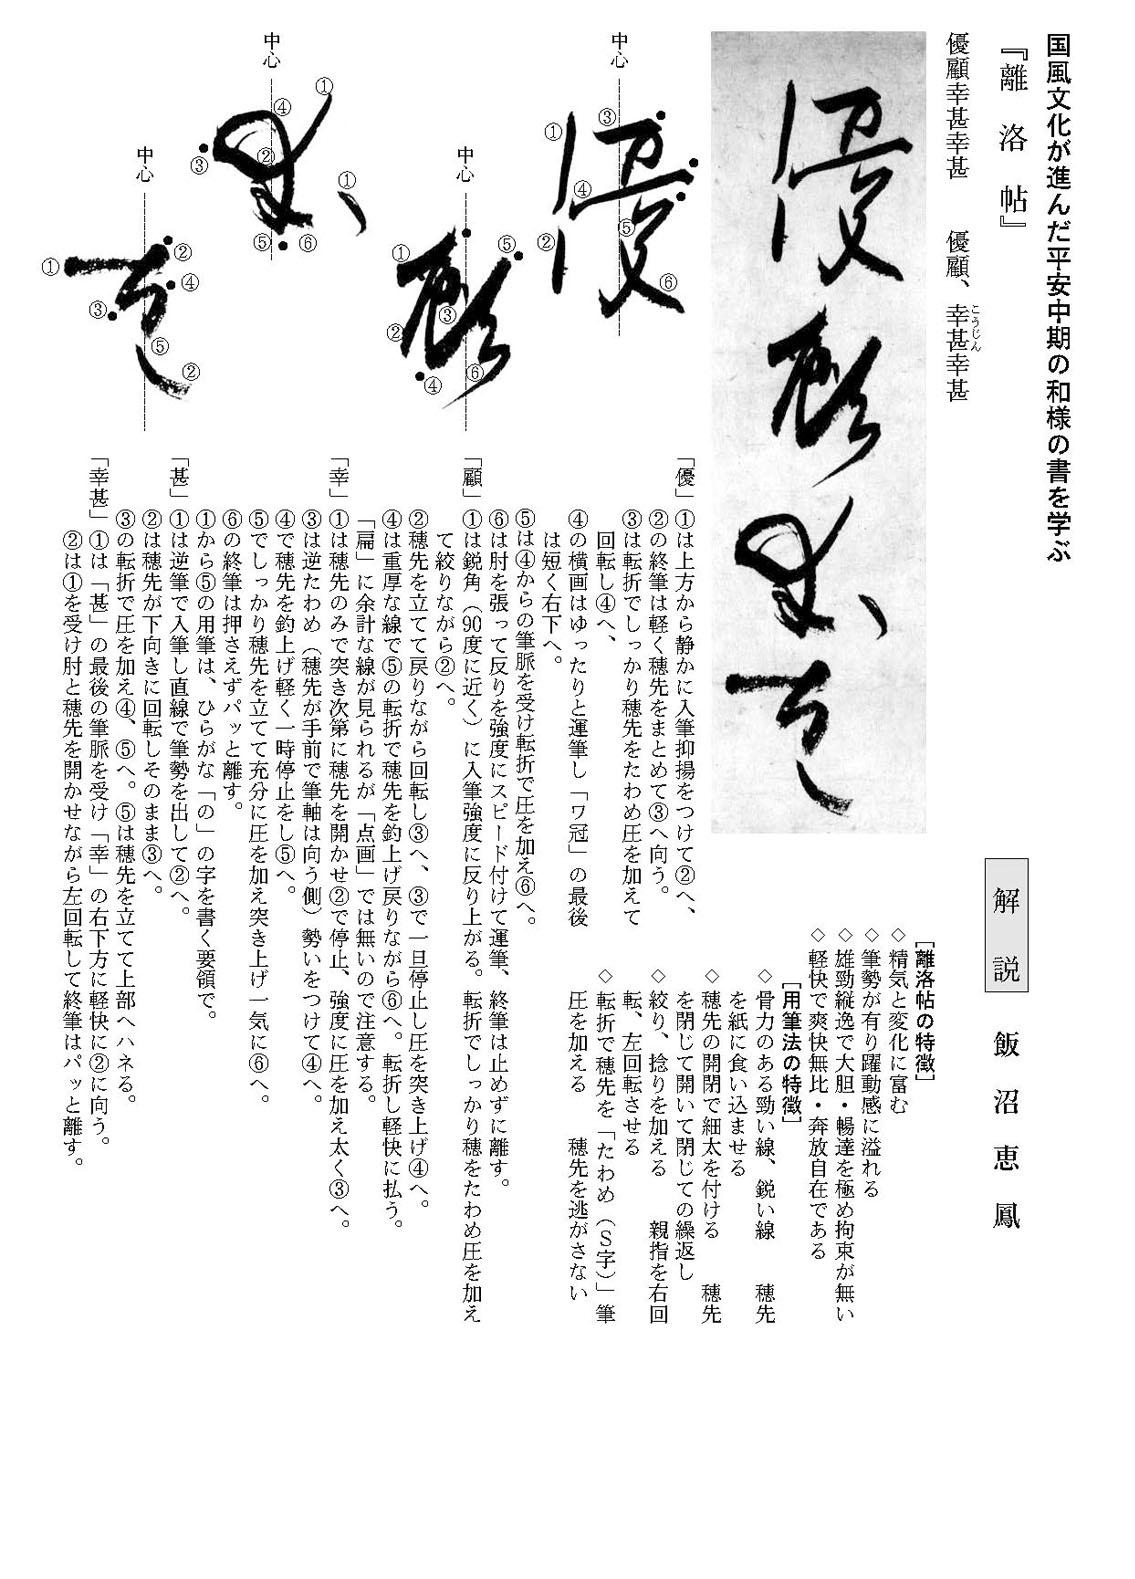 国風文化が進んだ平安中期の和様の書を学ぶ
『離洛帖』
解説 飯沼恵鳳
優顧幸甚幸甚 優顧、幸甚幸甚
こうじん
[離洛帖の特徴]
◇精気と変化に富む
◇筆勢が有り躍動感に溢れる
◇雄勁縦逸で大胆・暢達を極め拘束が無い
◇軽快で爽快無比・奔放自在である
[用筆法の特徴]
◇骨力のある勁い線、鋭い線 穂先
を紙に食い込ませる
◇穂先の開閉で細太を付ける 穂先
を閉じて開いて閉じての繰返し
◇絞り、捻りを加える 親指を右回
転、左回転させる
◇転折で穂先を「たわめ（S字）」筆
圧を加える 穂先を逃がさない
中心
①
②
③
④
⑤
⑥
中心
①
②
③
④
⑤
⑥
中心
①
①
②
③
④
⑤
⑥
中心
①
②
③
④
⑤
②
「優」①は上方から静かに入筆抑揚をつけて②へ、
②の終筆は軽く穂先をまとめて③へ向う。
③は転折でしっかり穂先をたわめ圧を加えて
回転し④へ、
④の横画はゆったりと運筆し「ワ冠」の最後
は短く右下へ。
⑤は④からの筆脈を受け転折で圧を加え⑥へ。
⑥は肘を張って反りを強度にスピード付けて運筆、終筆は止めずに離す。
「顧」①は鋭角（90度に近く）に入筆強度に反り上がる。転折でしっかり穂をたわめ圧を加え
て絞りながら②へ。
②穂先を立てて戻りながら回転し③へ、③で一旦停止し圧を突き上げ④へ。
④は重厚な線で⑤の転折で穂先を釣上げ戻りながら⑥へ。転折し軽快に払う。
「扁」に余計な線が見られるが「点画」では無いので注意する。
「幸」①は穂先のみで突き次第に穂先を開かせ②で停止、強度に圧を加え太く③へ。
③は逆たわめ（穂先が手前で筆軸は向う側）勢いをつけて④へ。
④で穂先を釣上げ軽く一時停止をし⑤へ。
⑤でしっかり穂先を立てて充分に圧を加え突き上げ一気に⑥へ。
⑥の終筆は押さえずパッと離す。
①から⑤の用筆は、ひらがな「の」の字を書く要領で。
「甚」①は逆筆で入筆し直線で筆勢を出して②へ。
②は穂先が下向きに回転しそのまま③へ。
③の転折で圧を加え④、⑤へ。⑤は穂先を立てて上部へハネる。
「幸甚」①は「甚」の最後の筆脈を受け「幸」の右下方に軽快に②に向う。
②は①を受け肘と穂先を開かせながら左回転して終筆はパッと離す。